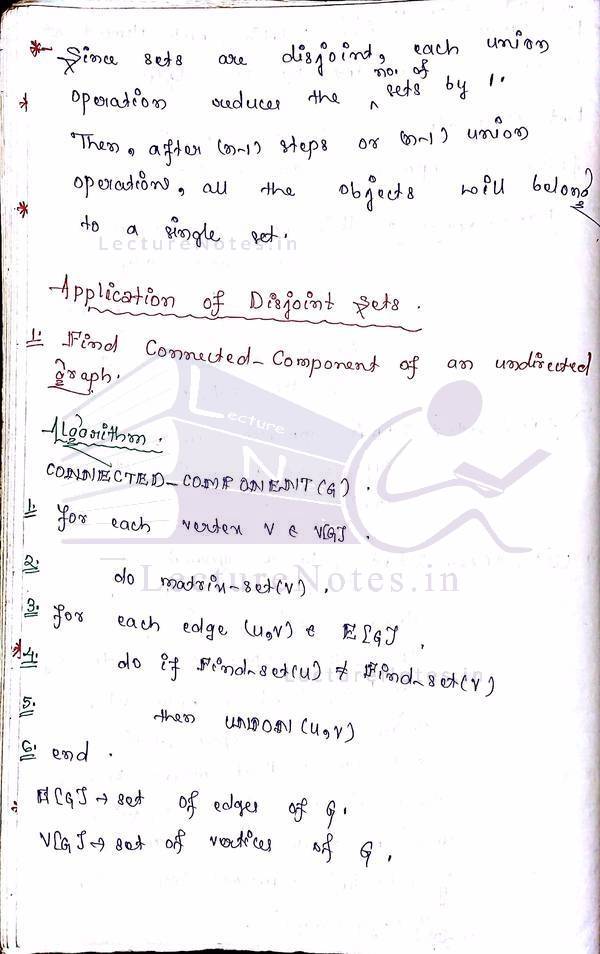 * Since sets are disjoint, each union
* operation reduces the no. of sets by 1.
Then, after (n-1) steps or (n-1) union
operations, all the objects will belong
* to a single set.
LectureNotes.in
Application of Disjoint sets.
1. Find Connected-Component of an undirected
graph.
Lecture
N
Algorithm.
CONNECTED-COMPONENT(G).
1. for each vertex v ∈ V[G].
2. do matrix-set(v).
LectureNotes.in
3. for each edge (u,v) ∈ E[G],
* 4. do if Find-set(u) ≠ Find-set(v)
LectureNotes.in
5. then UNION(u,v)
6. end.
E[G] → set of edges of G.
V[G] → set of vertices of G.